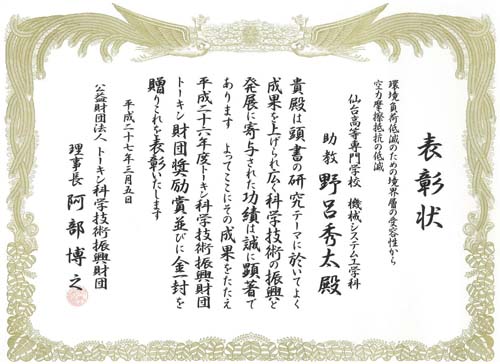 表彰状
環境負荷低減のための境界層の受容性から
空力摩擦抵抗の低減
仙台高等専門学校 機械システム工学科
助教 野呂秀太殿
貴殿は頭書の研究テーマに於いてよく
成果を上げられ広く科学技術の振興と
発展に寄与された功績は誠に顕著で
あります よってここにその成果をたたえ
平成二十六年度トーキン科学技術振興財団
トーキン財団奨励賞並びに金一封を
贈りこれを表彰いたします
平成二十七年三月五日
公益財団法人 トーキン科学技術振興財団
理事長 阿部博之